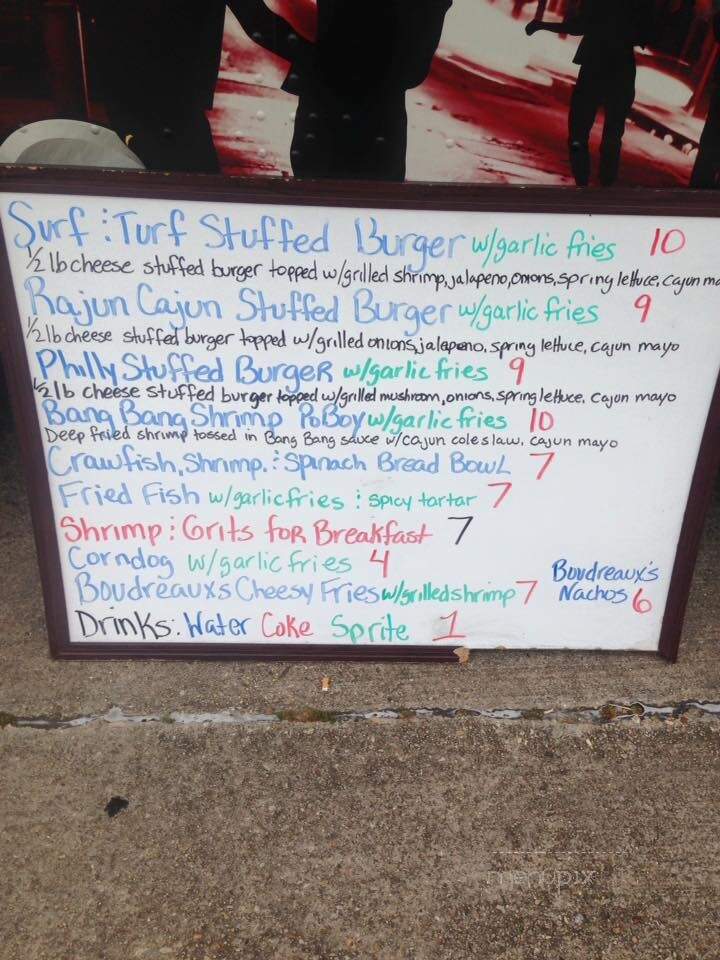 Surf : Turf Stuffed Burger w/garlic fries 10
1/2 lb cheese stuffed burger topped w/grilled shrimp, jalapeno, onions, spring lettuce, cajun ma
Rajun Cajun Stuffed Burger w/garlic fries 9
1/2 lb cheese stuffed burger topped w/grilled onions, jalapeno, spring lettuce, cajun mayo
Philly Stuffed BurgeR w/garlic fries 9
1/2 lb cheese stuffed burger topped w/grilled mushroom, onions, spring lettuce, cajun mayo
Bang Bang Shrimp PoBoy w/garlic fries 10
Deep fried shrimp tossed in Bang Bang sauce w/cajun coleslaw, cajun mayo
Crawfish, Shrimp, : Spinach Bread Bowl 7
Fried Fish w/garlic fries : spicy tartar 7
Shrimp : Grits foR Breakfast 7
Corndog w/garlic fries 4
Boudreauxs Cheesy Fries w/grilled shrimp 7
Boudreaux's
Nachos 6
Drinks: Water Coke Sprite 1
menupix